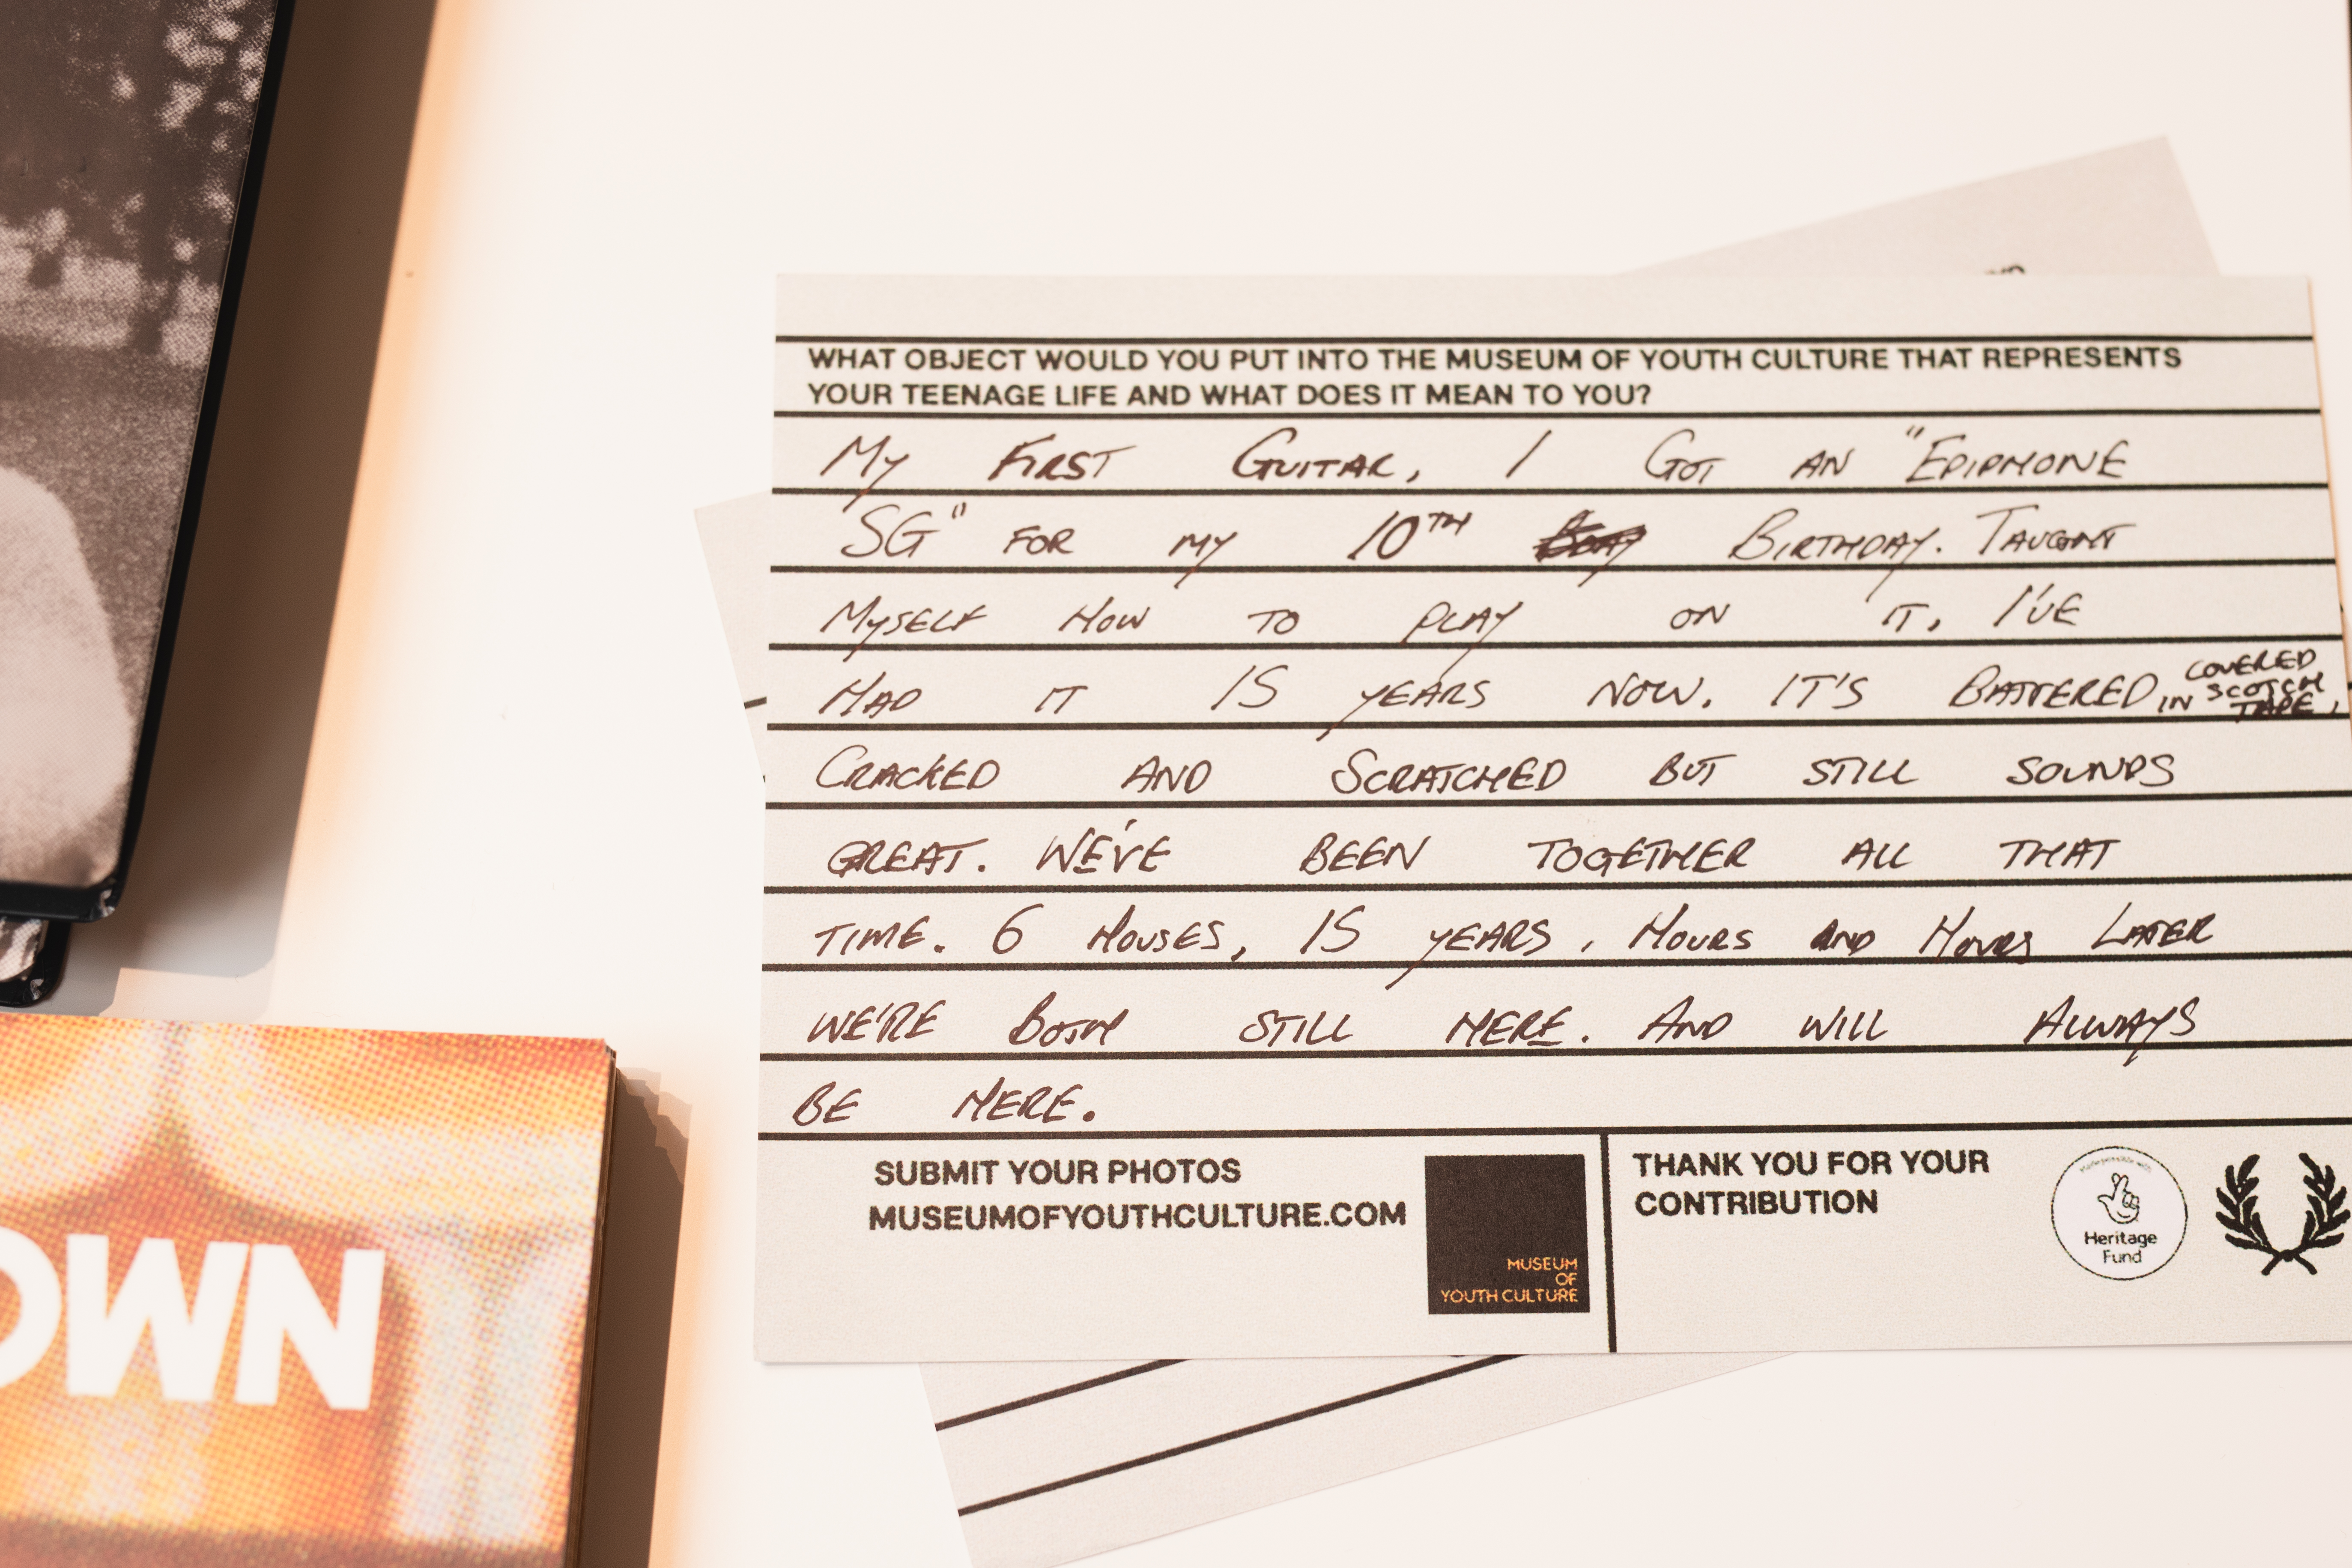 WHAT OBJECT WOULD YOU PUT INTO THE MUSEUM OF YOUTH CULTURE THAT REPRESENTS
YOUR TEENAGE LIFE AND WHAT DOES IT MEAN TO YOU?
MY FIRST GUITAR, I GOT AN "EPIPHONE
SG" FOR MY 10TH BIRTHDAY. TAUGHT
MYSELF HOW TO PLAY ON IT, I'VE
HAD IT 15 YEARS NOW. IT'S BATTERED, COVERED
IN SCOTCH
TAPE,
CRACKED AND SCRATCHED BUT STILL SOUNDS
GREAT. WE'VE BEEN TOGETHER ALL THAT
TIME. 6 HOUSES, 15 YEARS, HOURS AND HOURS LATER
WE'RE BOTH STILL HERE. AND WILL ALWAYS
BE HERE.
SUBMIT YOUR PHOTOS
MUSEUMOFYOUTHCULTURE.COM
MUSEUM
OF
YOUTH CULTURE
THANK YOU FOR YOUR
CONTRIBUTION
Heritage
Fund
OWN